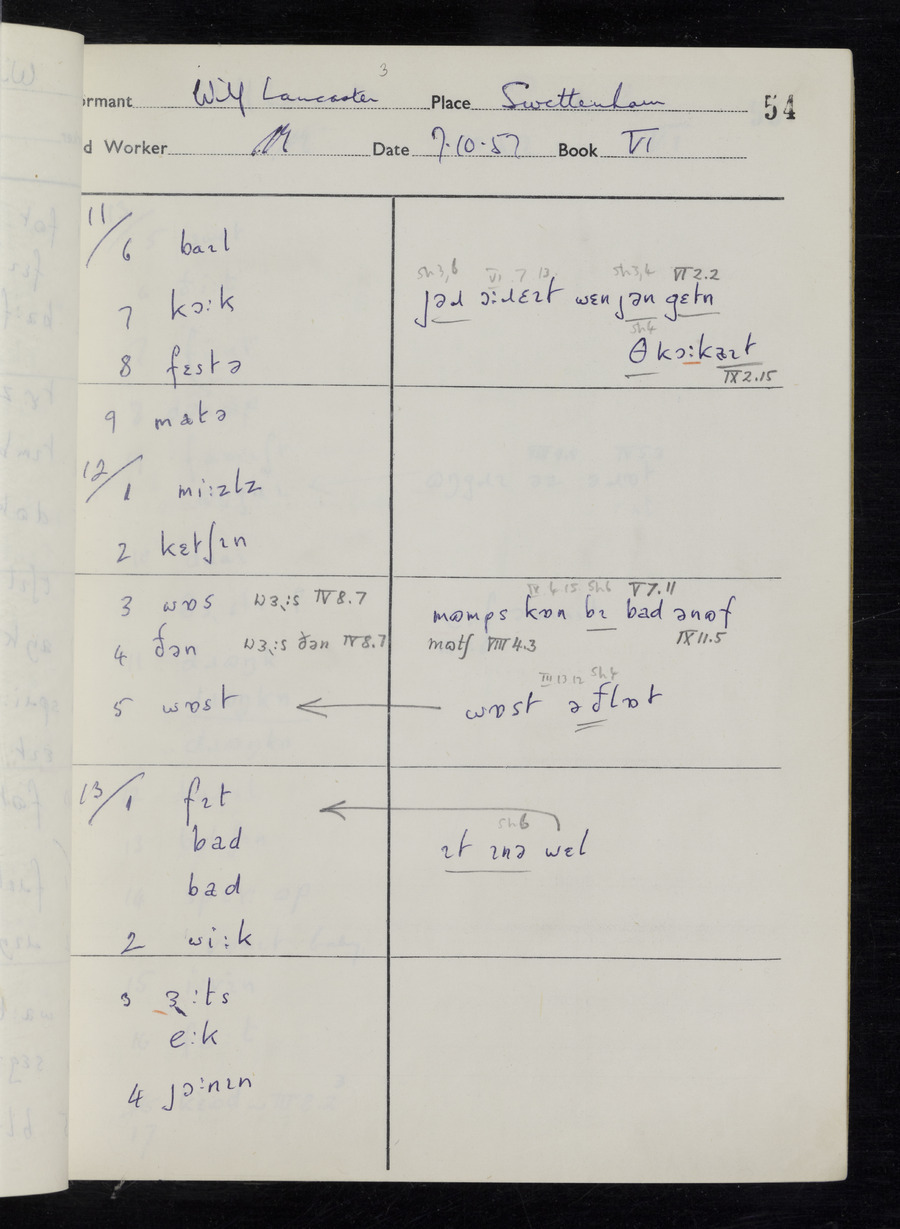 3
ormant Wilf Lancaster Place Swettenham 54
d Worker Date 7·10·57 Book VI
11/6 baɪl
7 kɔːk
8 fɛstə
sh3,6 VI 7 13 sh3,4 VI 2.2
jəd ɔːdɛɪt wɛn jən gɛtn
sh4
θ kɔːkəɪt
IX 2.15
9 matə
12/1 miːzlz
2 kɛtʃɪn
3 wɒs wɜːs IV 8.7
4 ðən wɜːs ðən IV 8.7
5 wɒst
IX 4.15 sh6 V 7.11
mɷmps kɒn bɪ bad ənɷf
mɷtʃ VIII 4.3 IX 11.5
III 13 12 sh4
wɒst ə ðlɒt
13/1 fɪt
bad
bad
2 wiːk
sh6
ɪt ɪnə wɛl
3 ɜːts
eːk
4 jɔːnɪn